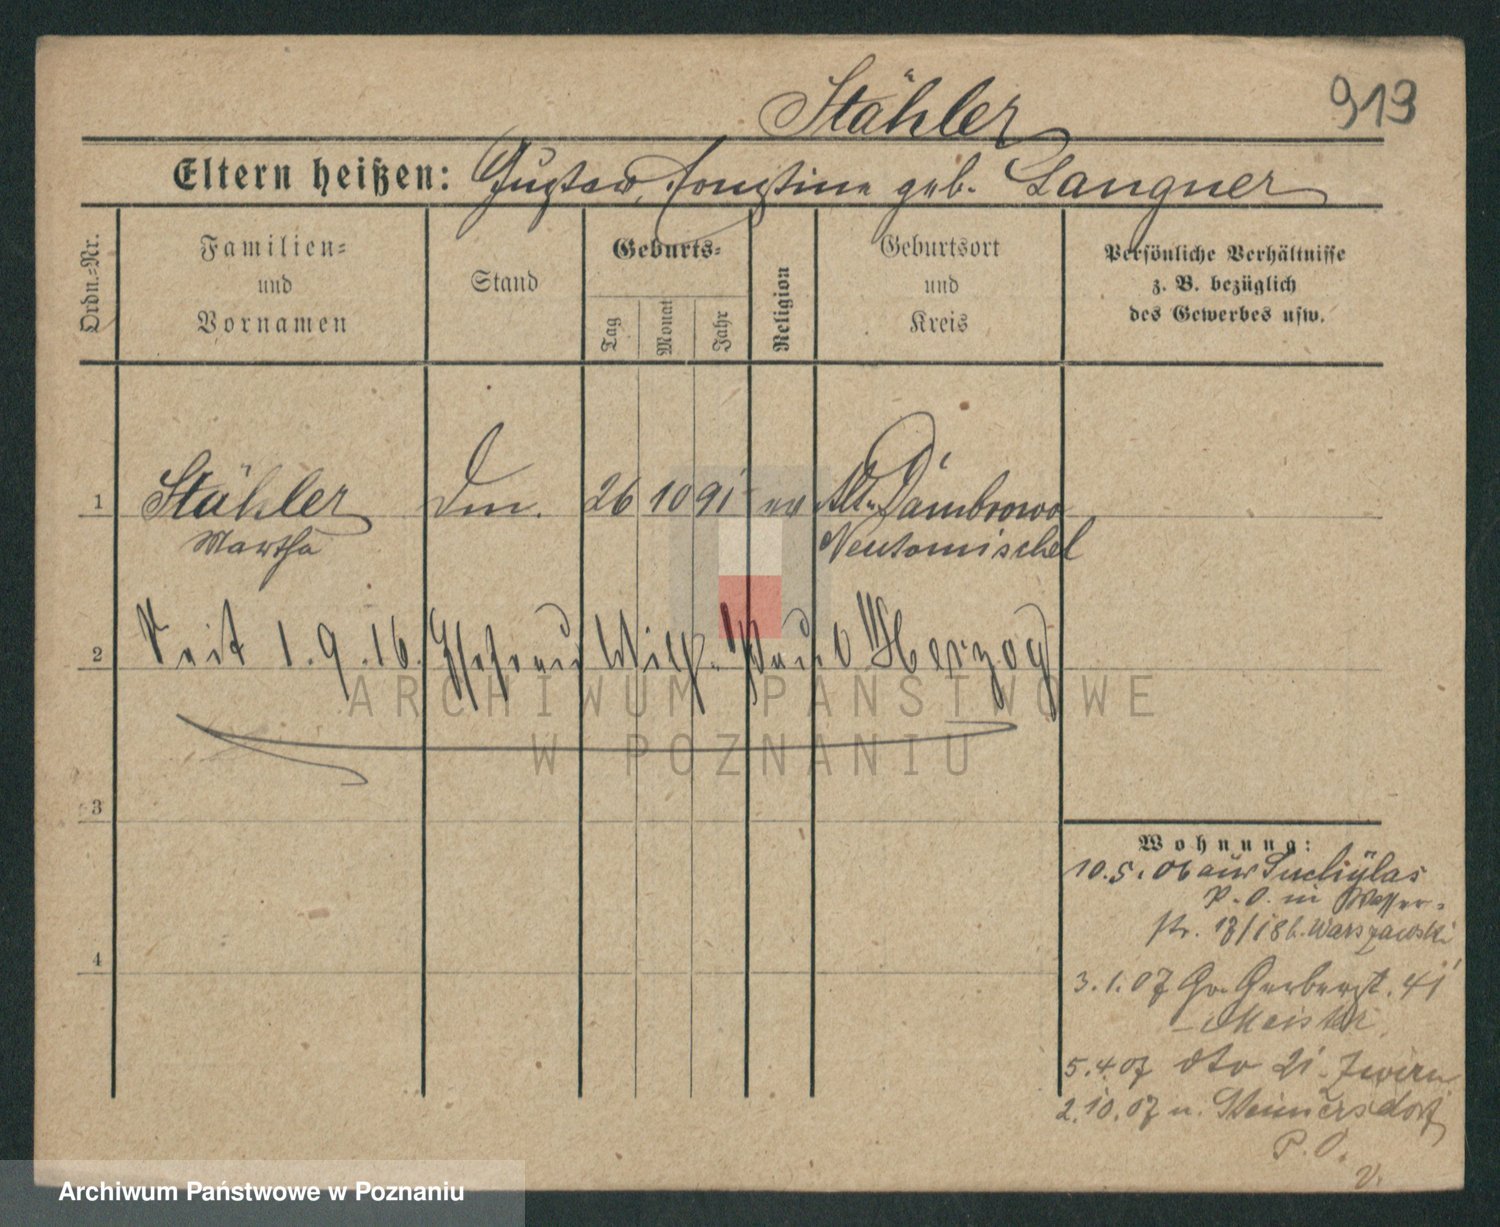 Stähler
913
Eltern heißen: Gustav, Ernstine geb. Langner
Ordn.=Nr.
Familien=
und
Vornamen
Stand
Geburts=
Tag
Monat
Jahr
Religion
Geburtsort
und
Kreis
Persönliche Verhältnisse
z. B. bezüglich
des Gewerbes usw.
1 Stähler 26 10 91 ev Alt Dambrowo
Martha Neutomischel
2 Seit 1.9.16. Ehefrau Wilh. Paul Herzog
3
Wohnung:
10.5.06 aus Suchylas
P.O. in Wasser=
str. 17/18 b. Warszawski
4
3.1.07 Gr. Gerberst. 41
Meister
5.4.07 dto 21 Zwirn
2.10.07 n. Steinersdorf
P.O.
v.
ARCHIWUM PAŃSTWOWE
W POZNANIU
Archiwum Państwowe w Poznaniu